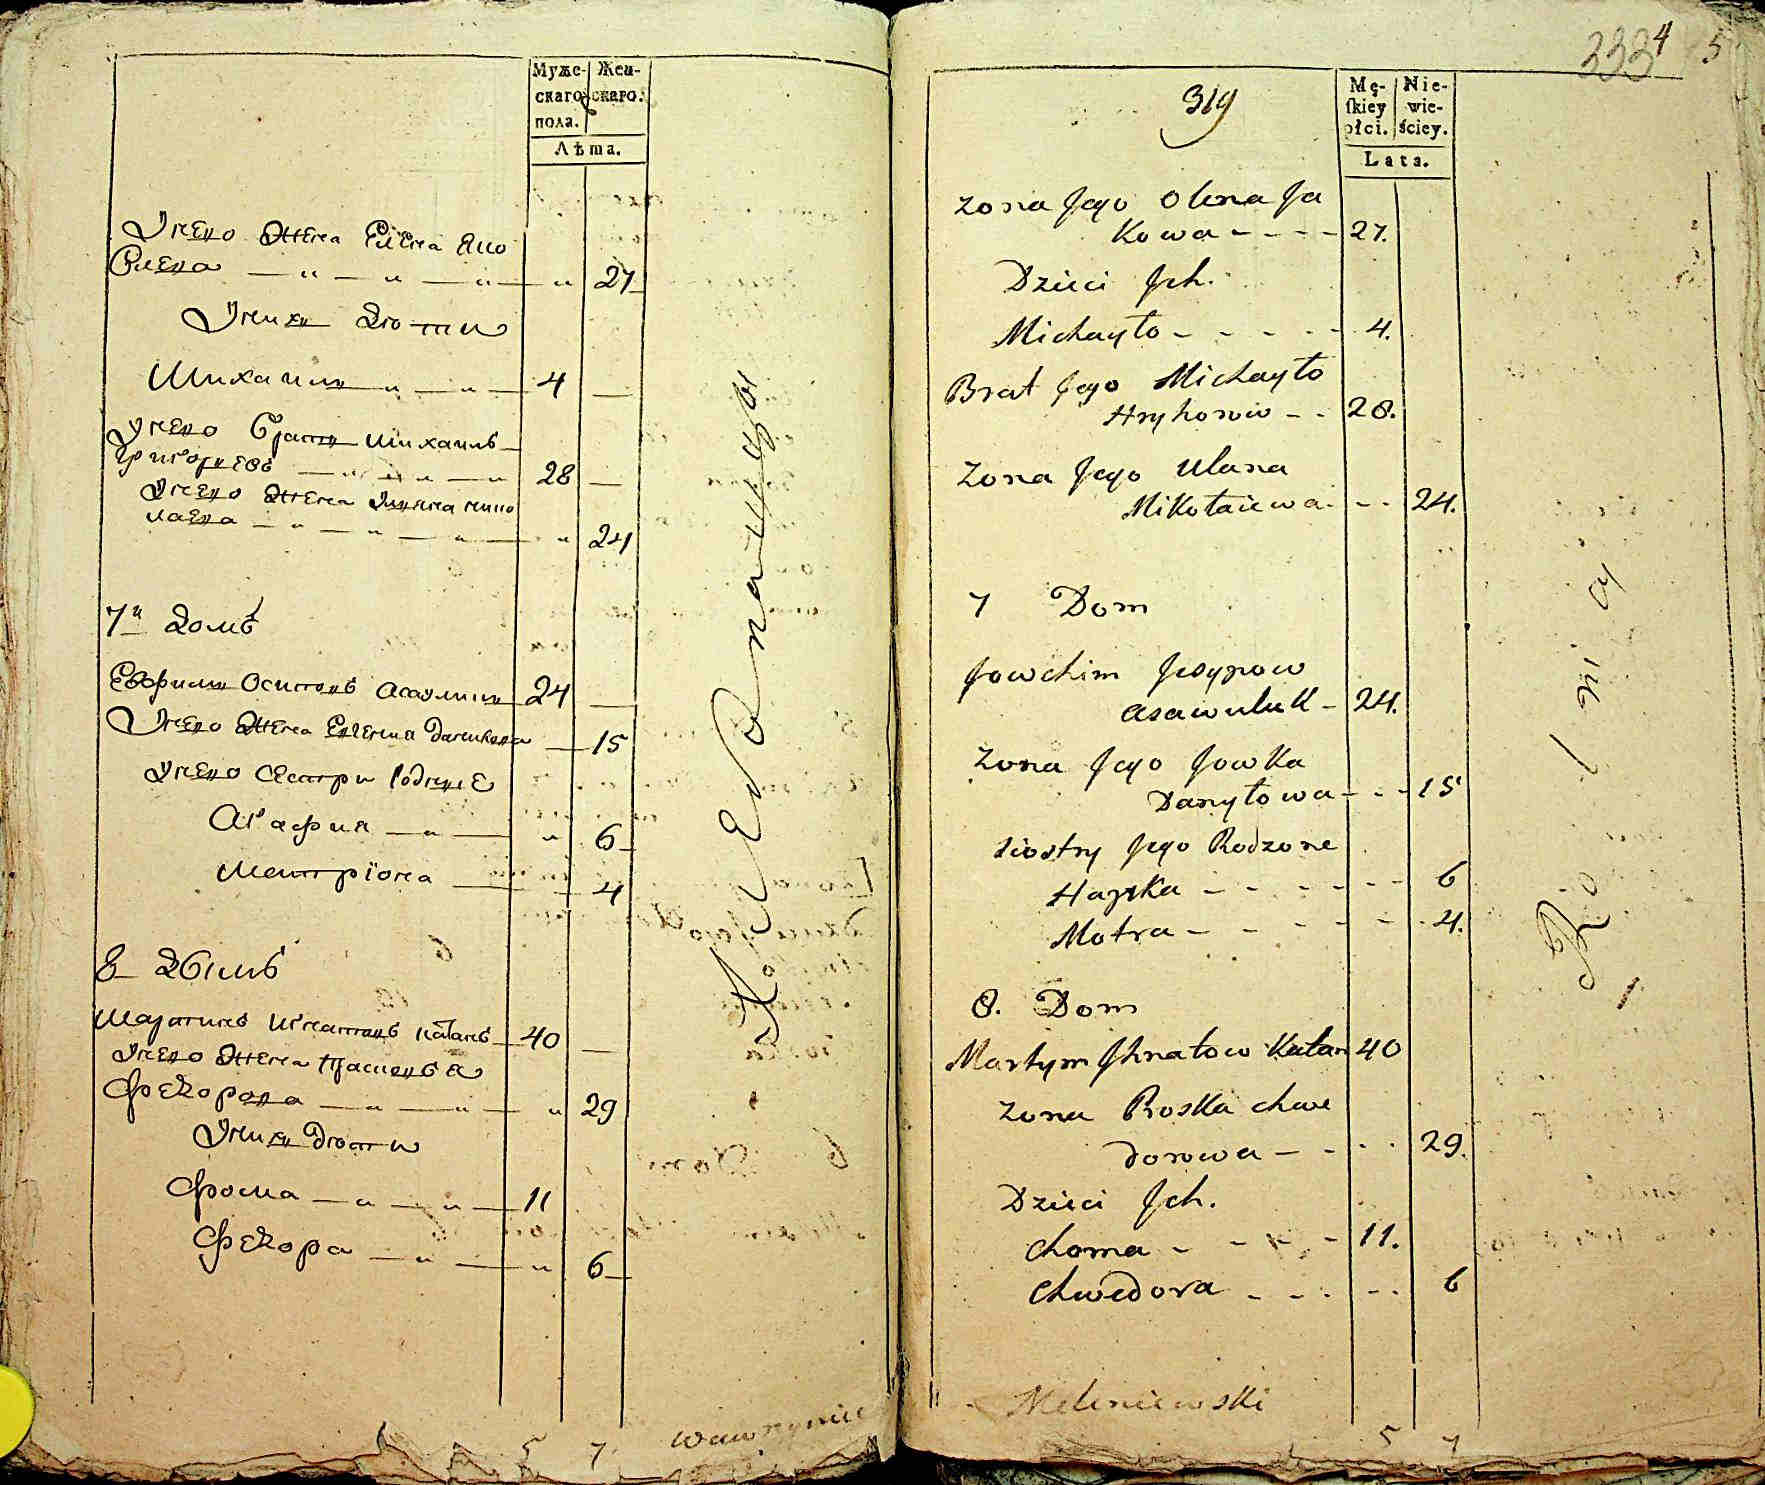 Муже- Жен-
скаго скаго.
пола.
Лѣта.
Его Жена Елена Яко
влева 27
Ихъ Дѣти
Михаилъ 4
Его Братъ Михаилъ
Григорьевъ 28
Его Жена Ульяна Нико
лаева 24
7й Домъ
Евфимъ Осиповъ 24
Его Жена Данилова 15
Его Сестри Родные
Агафия 6
Матрiона 4
8 Домъ
Мартинъ Игнатовъ Катанъ 40
Его Жена
Федорова 29
Ихъ Дѣти
Фома 11
Федора 6
5 7
Wawrzyniec
3334 5
319
Mę- Nie-
skiey wie-
płci. ściey.
Lata.
Zona Jego Olena Ja
Kowa 27.
Dzieci Jch.
Michayło 4.
Brat Jego Michayło
Hryhorow 28.
Zona Jego Ulana
Mikołaiewa 24.
7 Dom
Jowchim Jesypow
Asawuluk 24.
Zona Jego Jowka
Danyłowa 15
Siostry Jego Rodzone
Hapka 6
Motra 4.
8. Dom
Martyn Jhnatow Katan 40
Zona Proska Chwe
dorowa 29.
Dzieci Jch.
Choma 11.
Chwedora 6
Meleniewski
5 7